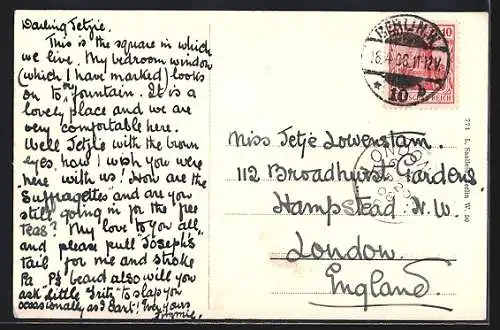 Darling Jetje.
This is the square in which
we live. My bedroom window
(which I have marked) looks
on to the fountain. It is a
lovely place and we are
very comfortable here.
Well Jetje with the brown
eyes, how I wish you were
here with us! How are the
"Suffragettes" and are you
still going in for the free
teas? My love to you all
and please pull Joseph's
tail for me and stroke
Pa P's beard also will you
ask little Fritz to slap you
occasionally as I can't! Ever yours
BERLIN.W.
10
Miss Jetje Lowenstam.
112 Broadhurst Gardens
Hampstead N.W.
London.
England.
774 L. Saalfeld, Berlin W. 30